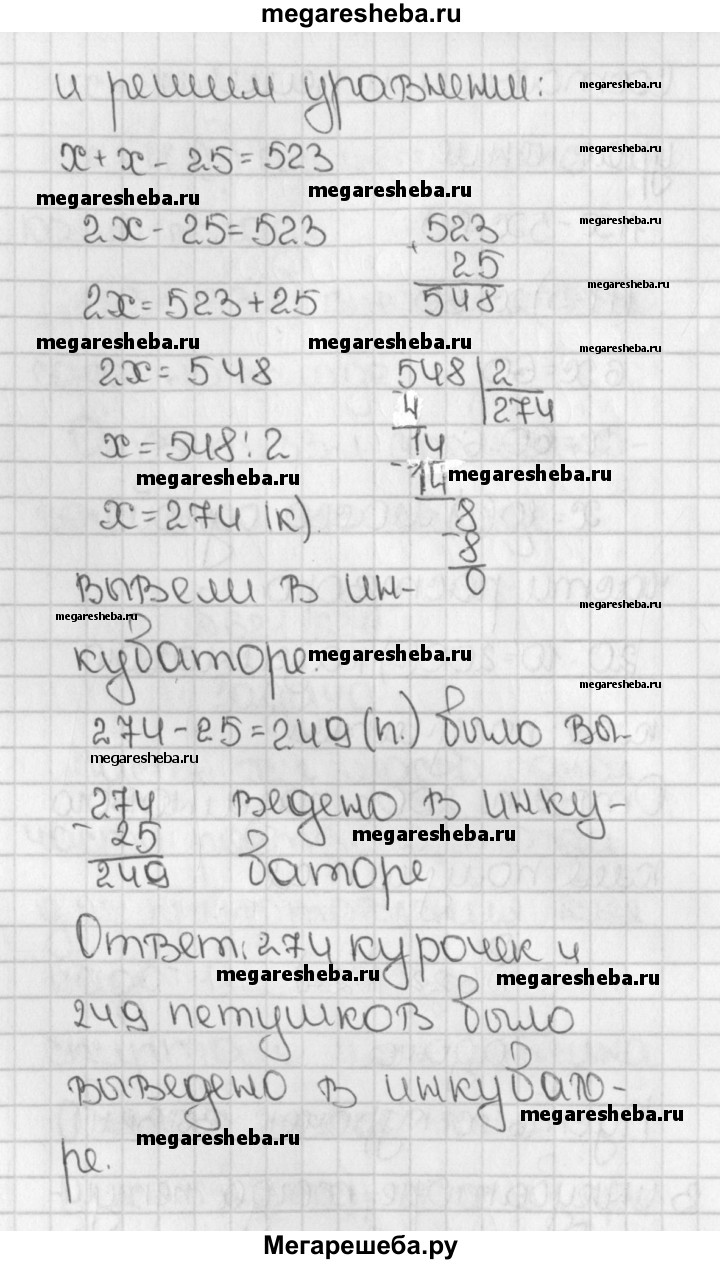 megaresheba.ru
и решим уравнении:
megaresheba.ru
x + x - 25 = 523
megaresheba.ru
megaresheba.ru
megaresheba.ru
2x - 25 = 523
523
megaresheba.ru
+ 25
2x = 523 + 25
548
megaresheba.ru
megaresheba.ru
megaresheba.ru
megaresheba.ru
2x = 548
548 | 2
4 274
x = 548 : 2
14
megaresheba.ru
- 14
megaresheba.ru
x = 274 (к)
8
- 8
вывели в ин-
0
megaresheba.ru
megaresheba.ru
кубаторе.
megaresheba.ru
megaresheba.ru
274 - 25 = 249 (п.) было вы-
megaresheba.ru
274 ведено в инку-
- 25
megaresheba.ru
249 баторе
Ответ: 274 курочек и
megaresheba.ru
megaresheba.ru
249 петушков было
выведено в инкубато-
megaresheba.ru
megaresheba.ru
ре.
Мегарешеба.ру